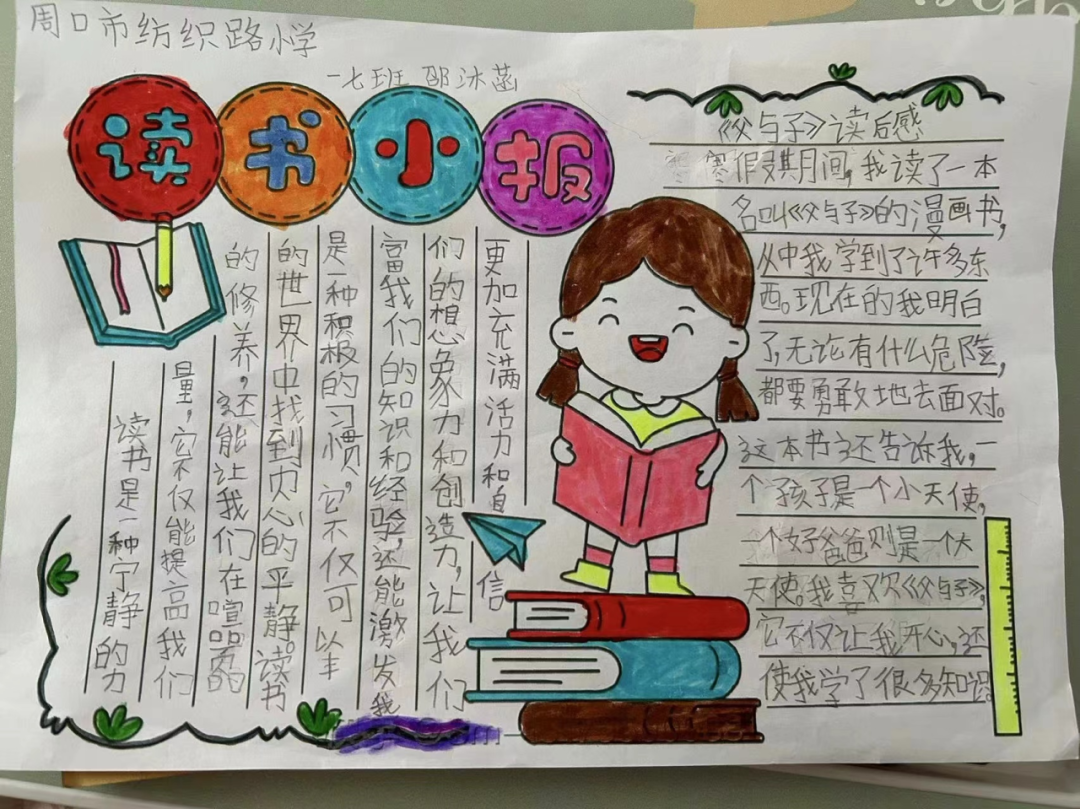 周口市纺织路小学
一七班 邵
读书小报
读书是一种宁静的力
量，它不仅能提高我们
的修养，还能让我们在喧嚣的
的世界中找到内心的平静。读书
是一种积极的习惯、它不仅可以丰
富我们的知识和经验，还能激发我
们的想象力和创造力，让我们
更加充满活力和自信
《父与子》读后感
寒假期间，我读了一本
名叫《父与子》的漫画书，
从中我学到了许多东
西。现在的我明白
了，无论有什么危险，
都要勇敢地去面对。
这本书还告诉我，一
个孩子是一个小天使，
一个好爸爸则是一个大
天使。我喜欢《父与子》，
它不仅让我开心，还
使我学了很多知识。